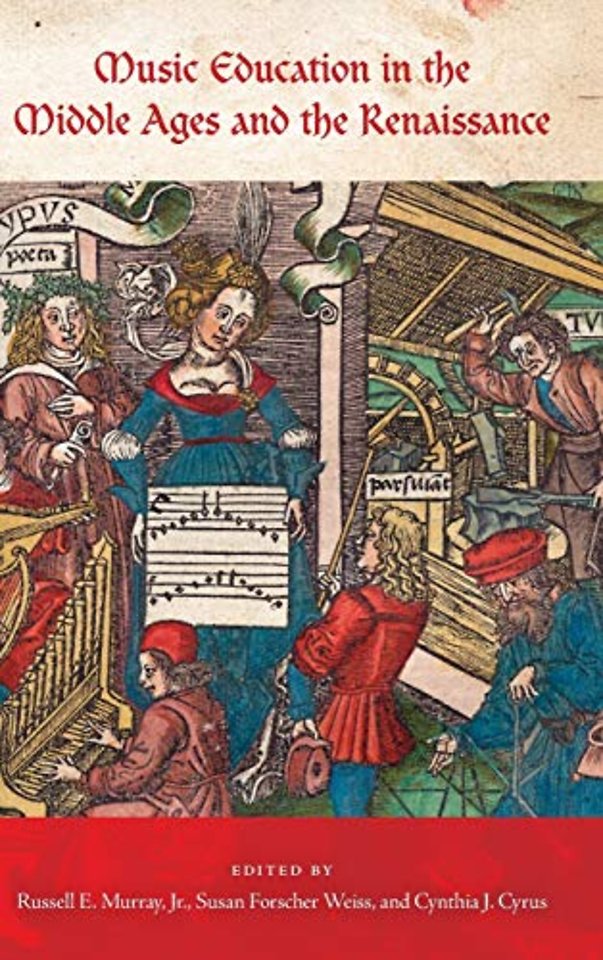 Music Education in the
Middle Ages and the Renaissance
YPVS
poeta
TV
EDITED BY
Russell E. Murray, Jr., Susan Forscher Weiss, and Cynthia J. Cyrus